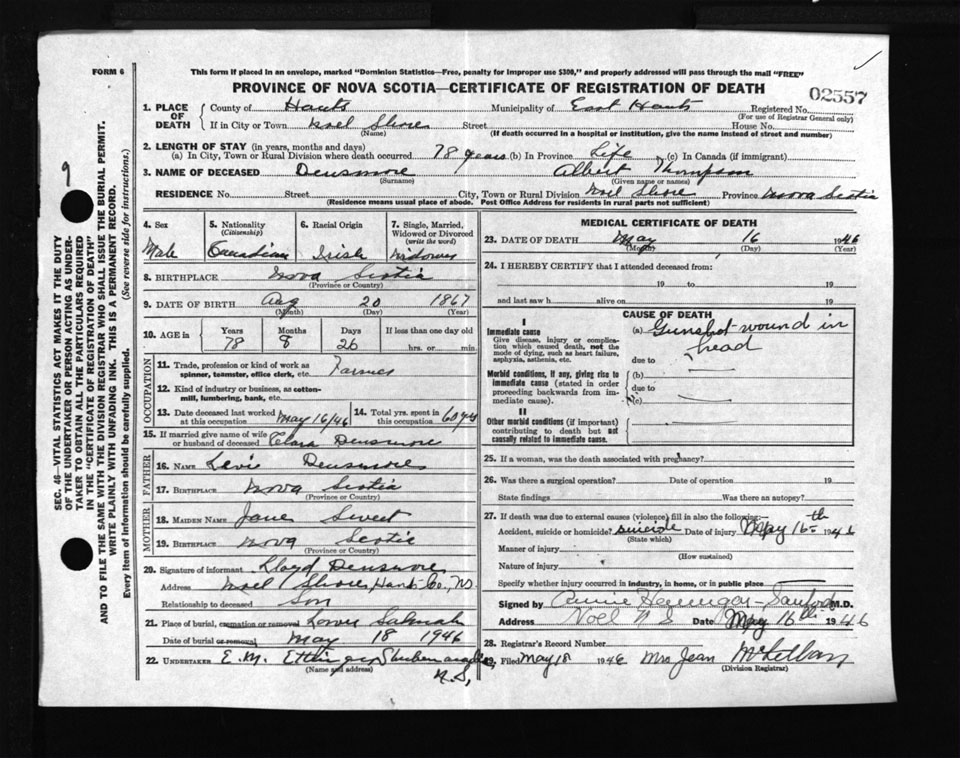 FORM 6
This form if placed in an envelope, marked "Dominion Statistics—Free, penalty for improper use $300," and properly addressed will pass through the mail "FREE"
PROVINCE OF NOVA SCOTIA—CERTIFICATE OF REGISTRATION OF DEATH
02557
1. PLACE OF DEATH
County of Hants Municipality of East Hants Registered No.
(For use of Registrar General only)
If in City or Town Noel Shore Street House No.
(Name) (If death occurred in a hospital or institution, give the name instead of street and number)
2. LENGTH OF STAY (in years, months and days)
(a) In City, Town or Rural Division where death occurred 78 years (b) In Province Life (c) In Canada (if immigrant)
3. NAME OF DECEASED Densmore Albert Thompson
(Surname) (Given name or names)
RESIDENCE No. Street City, Town or Rural Division Noel Shore Province Nova Scotia
(Residence means usual place of abode. Post Office Address for residents in rural parts not sufficient)
4. Sex 5. Nationality (Citizenship) 6. Racial Origin 7. Single, Married, Widowed or Divorced (write the word)
Male Canadian Irish Widower
8. BIRTHPLACE Nova Scotia
(Province or Country)
9. DATE OF BIRTH Aug 20 1867
(Month) (Day) (Year)
10. AGE in Years Months Days If less than one day old
78 8 26 hrs. or min.
OCCUPATION
11. Trade, profession or kind of work as spinner, teamster, office clerk, etc. Farmer
12. Kind of industry or business, as cotton-mill, lumbering, bank, etc.
13. Date deceased last worked at this occupation May 16/46 14. Total yrs. spent in this occupation 60 yrs
15. If married give name of wife or husband of deceased Clara Densmore
FATHER
16. NAME Levie Densmore
17. BIRTHPLACE Nova Scotia
(Province or Country)
MOTHER
18. MAIDEN NAME Jane Sweet
19. BIRTHPLACE Nova Scotia
(Province or Country)
20. Signature of informant Lloyd Densmore
Address Noel Shore, Hants Co., N.S.
Relationship to deceased Son
21. Place of burial, cremation or removal Lower Selmah
Date of burial or removal May 18 1946
22. UNDERTAKER E.M. Ettinger Shubenacadie
(Name and address)
N.S,
MEDICAL CERTIFICATE OF DEATH
23. DATE OF DEATH May 16 1946
(Month) (Day) (Year)
24. I HEREBY CERTIFY that I attended deceased from:
19 to 19
and last saw h alive on 19
CAUSE OF DEATH
I
Immediate cause (a) Gunshot wound in head
Give disease, injury or complication which caused death, not the mode of dying, such as heart failure, asphyxia, asthenia, etc.
due to
Morbid conditions, if any, giving rise to immediate cause (stated in order proceeding backwards from immediate cause).
(b)
due to
(c)
II
Other morbid conditions (if important) contributing to death but not causally related to immediate cause.
25. If a woman, was the death associated with pregnancy?
26. Was there a surgical operation? Date of operation 19
State findings Was there an autopsy?
27. If death was due to external causes (violence) fill in also the following:—
Accident, suicide or homicide? suicide Date of injury May 16th 1946
(State which)
Manner of injury
(How sustained)
Nature of injury
Specify whether injury occurred in industry, in home, or in public place
Signed by Annie Hennigar-Sanford M.D.
Address Noel N S Date May 16th 1946
28. Registrar's Record Number
29. Filed May 18 1946 Mrs Jean
(Division Registrar)
9
SEC. 46—VITAL STATISTICS ACT MAKES IT THE DUTY
OF THE UNDERTAKER OR PERSON ACTING AS UNDER-
TAKER TO OBTAIN ALL THE PARTICULARS REQUIRED
IN THE "CERTIFICATE OF REGISTRATION OF DEATH"
AND TO FILE THE SAME WITH THE DIVISION REGISTRAR WHO SHALL ISSUE THE BURIAL PERMIT.
WRITE PLAINLY WITH UNFADING INK. THIS IS A PERMANENT RECORD.
Every item of Information should be carefully supplied. (See reverse side for instructions.)